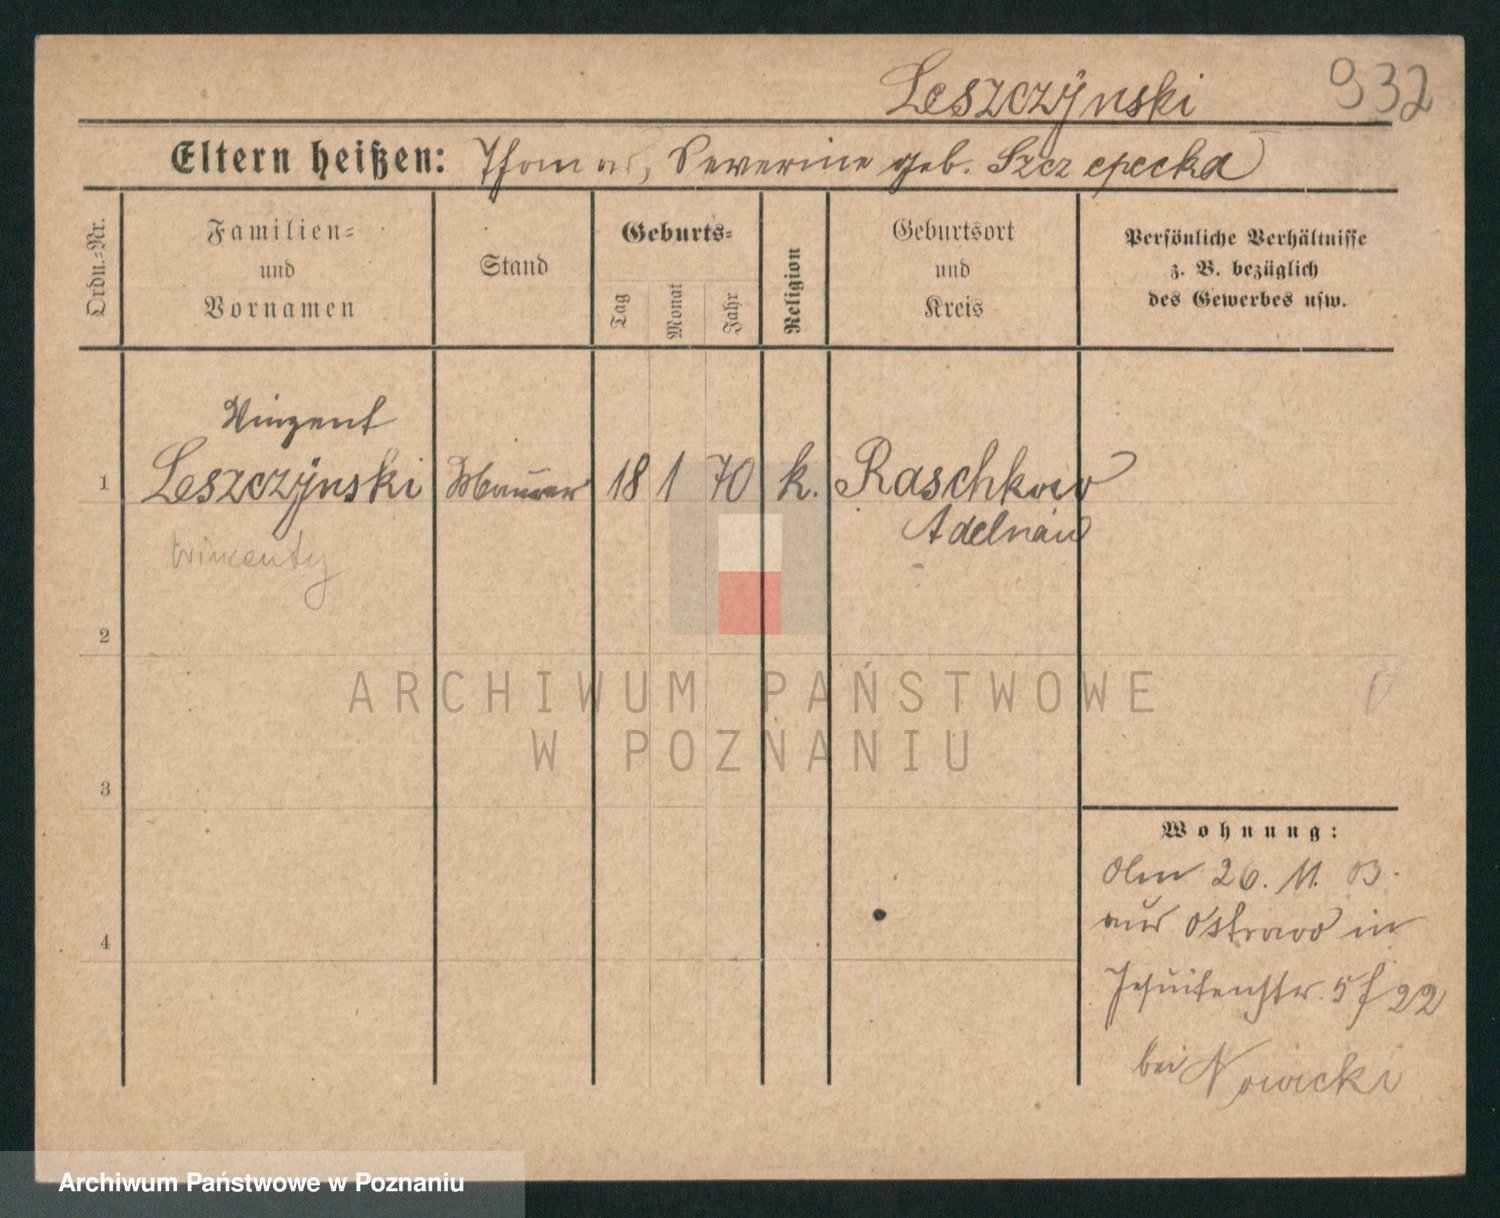 Leszczÿnski 932
Eltern heißen: Thomas, Severine geb. Szczepecka
Ordn.-Nr.
Familien-
und
Vornamen
Stand
Geburts-
Tag
Monat
Jahr
Religion
Geburtsort
und
Kreis
Persönliche Verhältnisse
z. B. bezüglich
des Gewerbes usw.
Vinzent
1 Leszczÿnski Maurer 18 1 70 k. Raschkow
Adelnau
2
3
4
ARCHIWUM PAŃSTWOWE
W POZNANIU
Wohnung:
26. 11. 03.
aus Ostrowo in
Jesuitenstr. 5
bei Nowicki
Archiwum Państwowe w Poznaniu